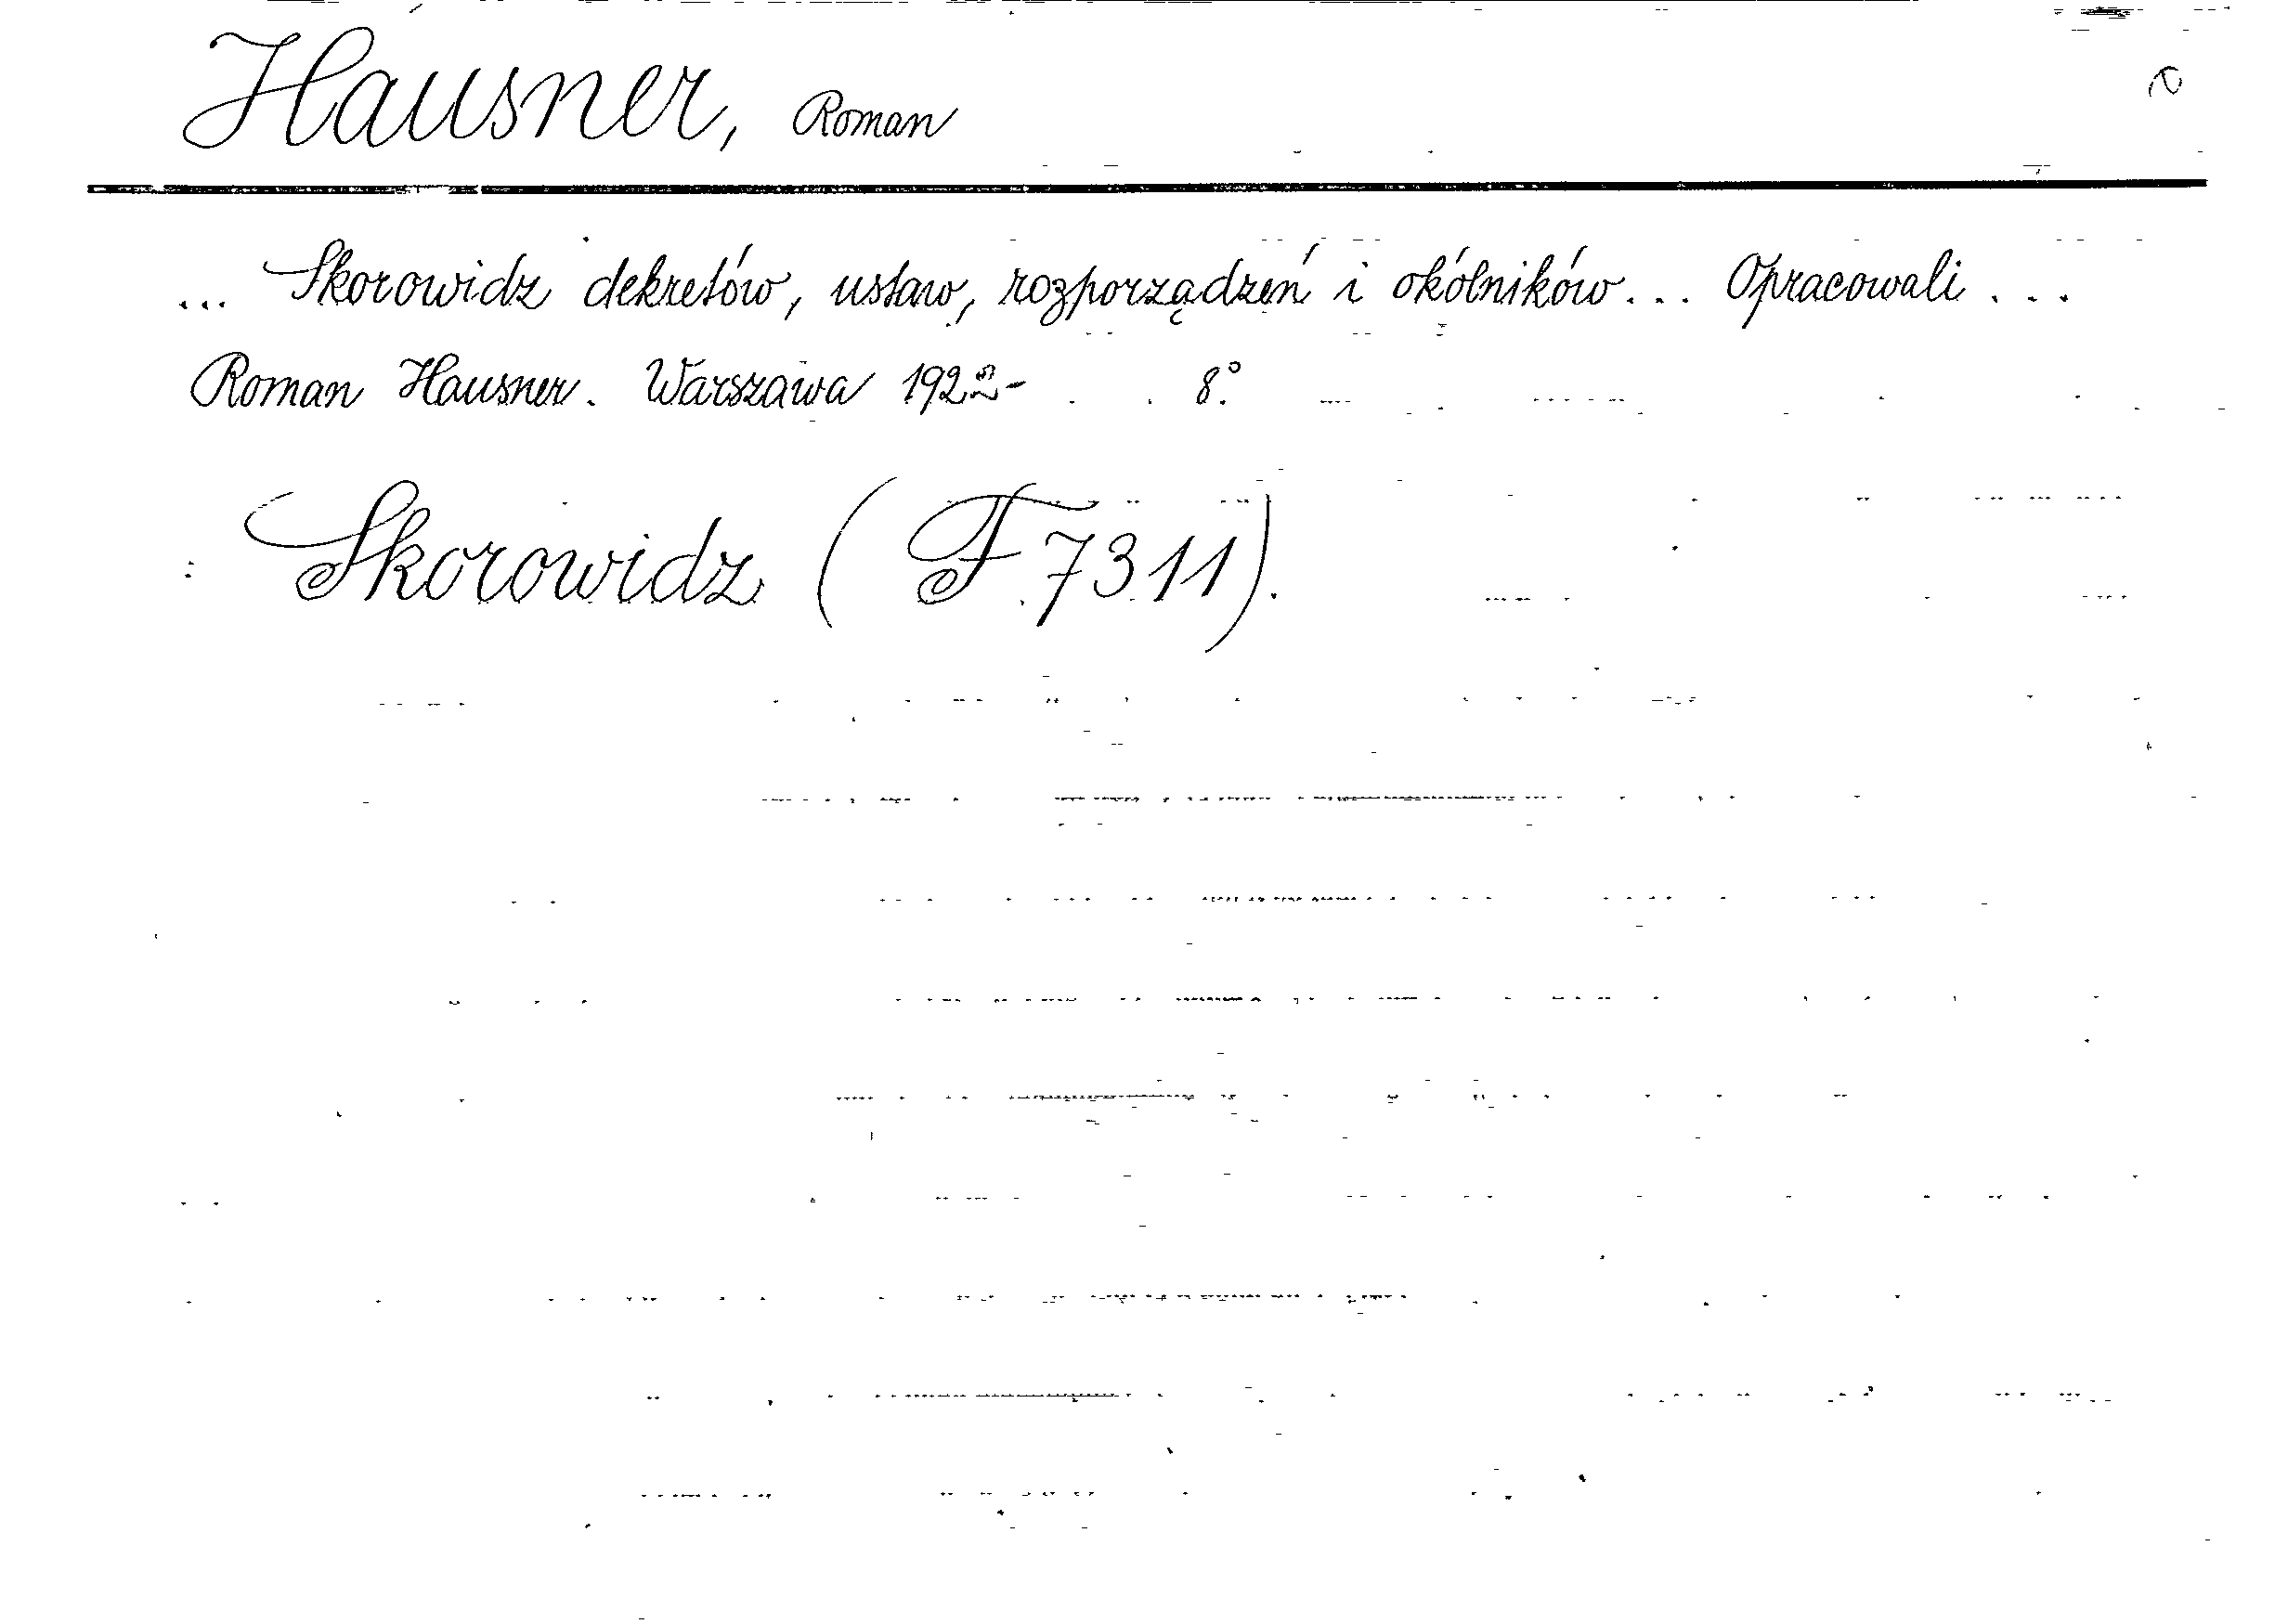 Hausner, Roman
... Skorowidz dekretów, ustaw, rozporządzeń i okólników... Opracowali ...
Roman Hausner. Warszawa 1922- 8°.
: Skorowidz (F 7311).